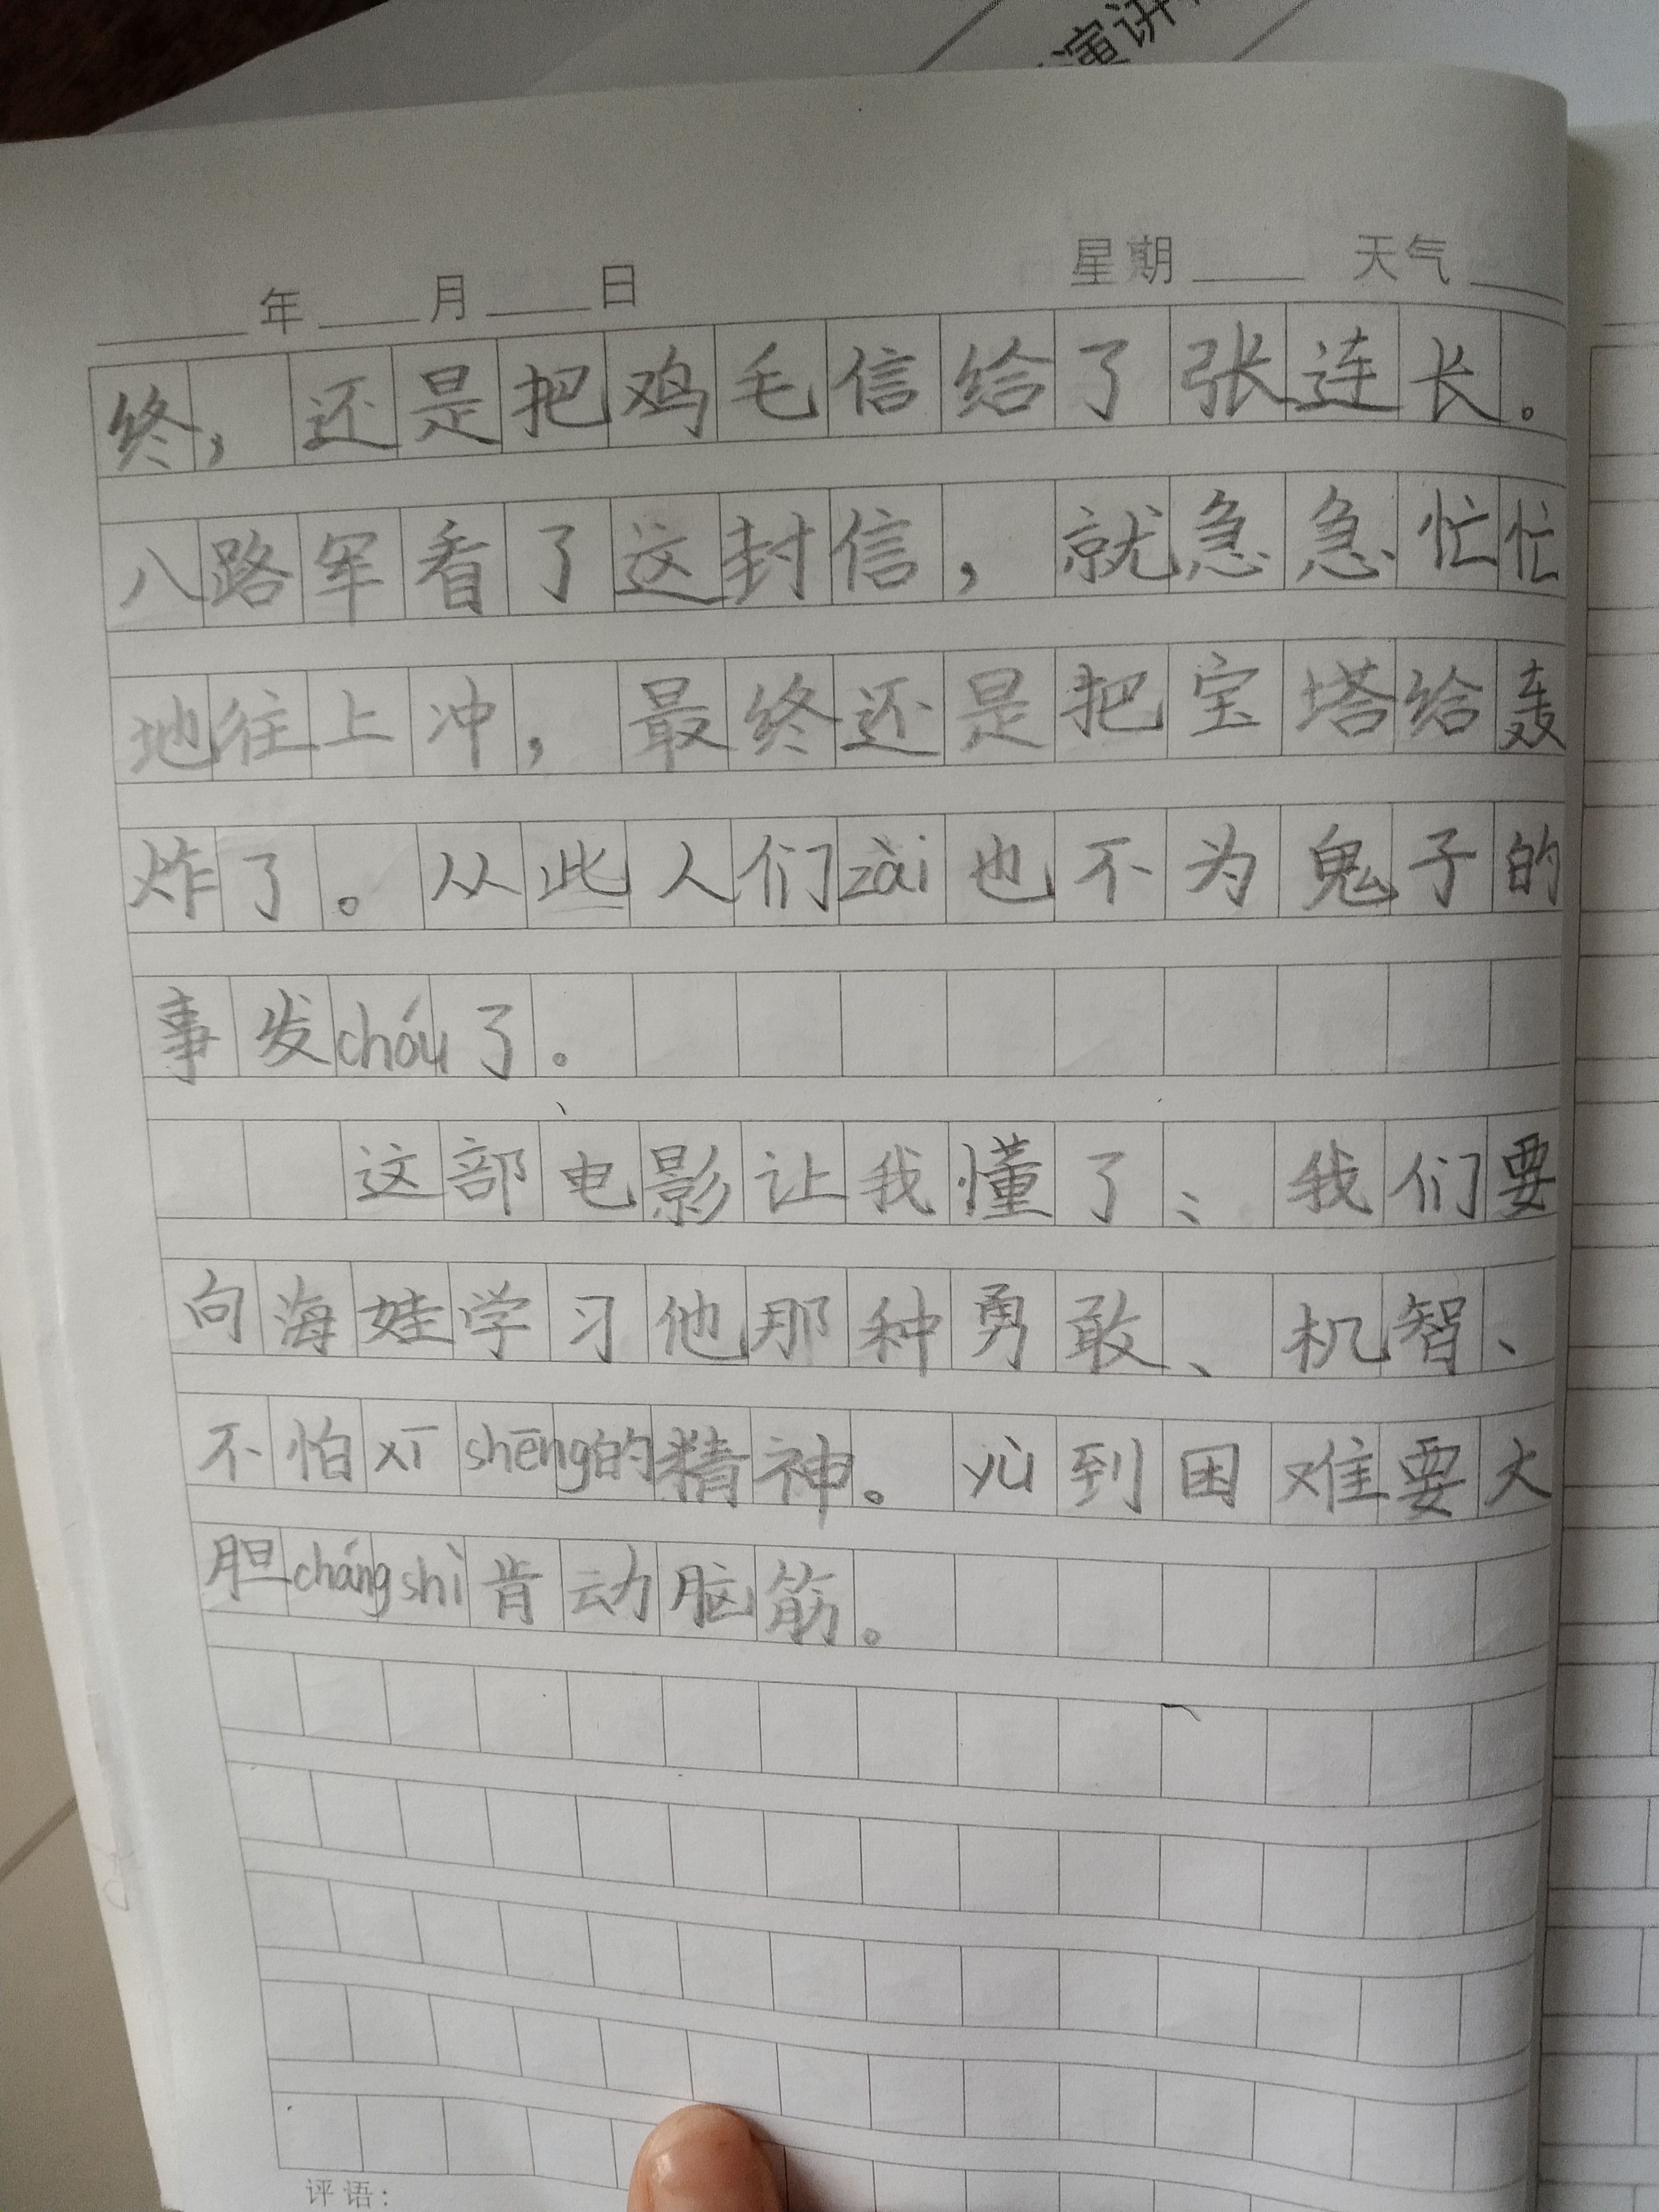 演讲
____年____月____日 星期____ 天气____
终，还是把鸡毛信给了张连长。
八路军看了这封信，就急急忙忙
地往上冲，最终还是把宝塔给轰
炸了。从此人们zài也不为鬼子的
事发cháu了。
这部电影让我懂了：我们要
向海娃学习他那种勇敢、机智、
不怕xī shēng的精神。yù到困难要大
胆cháng shì肯动脑筋。
评语：